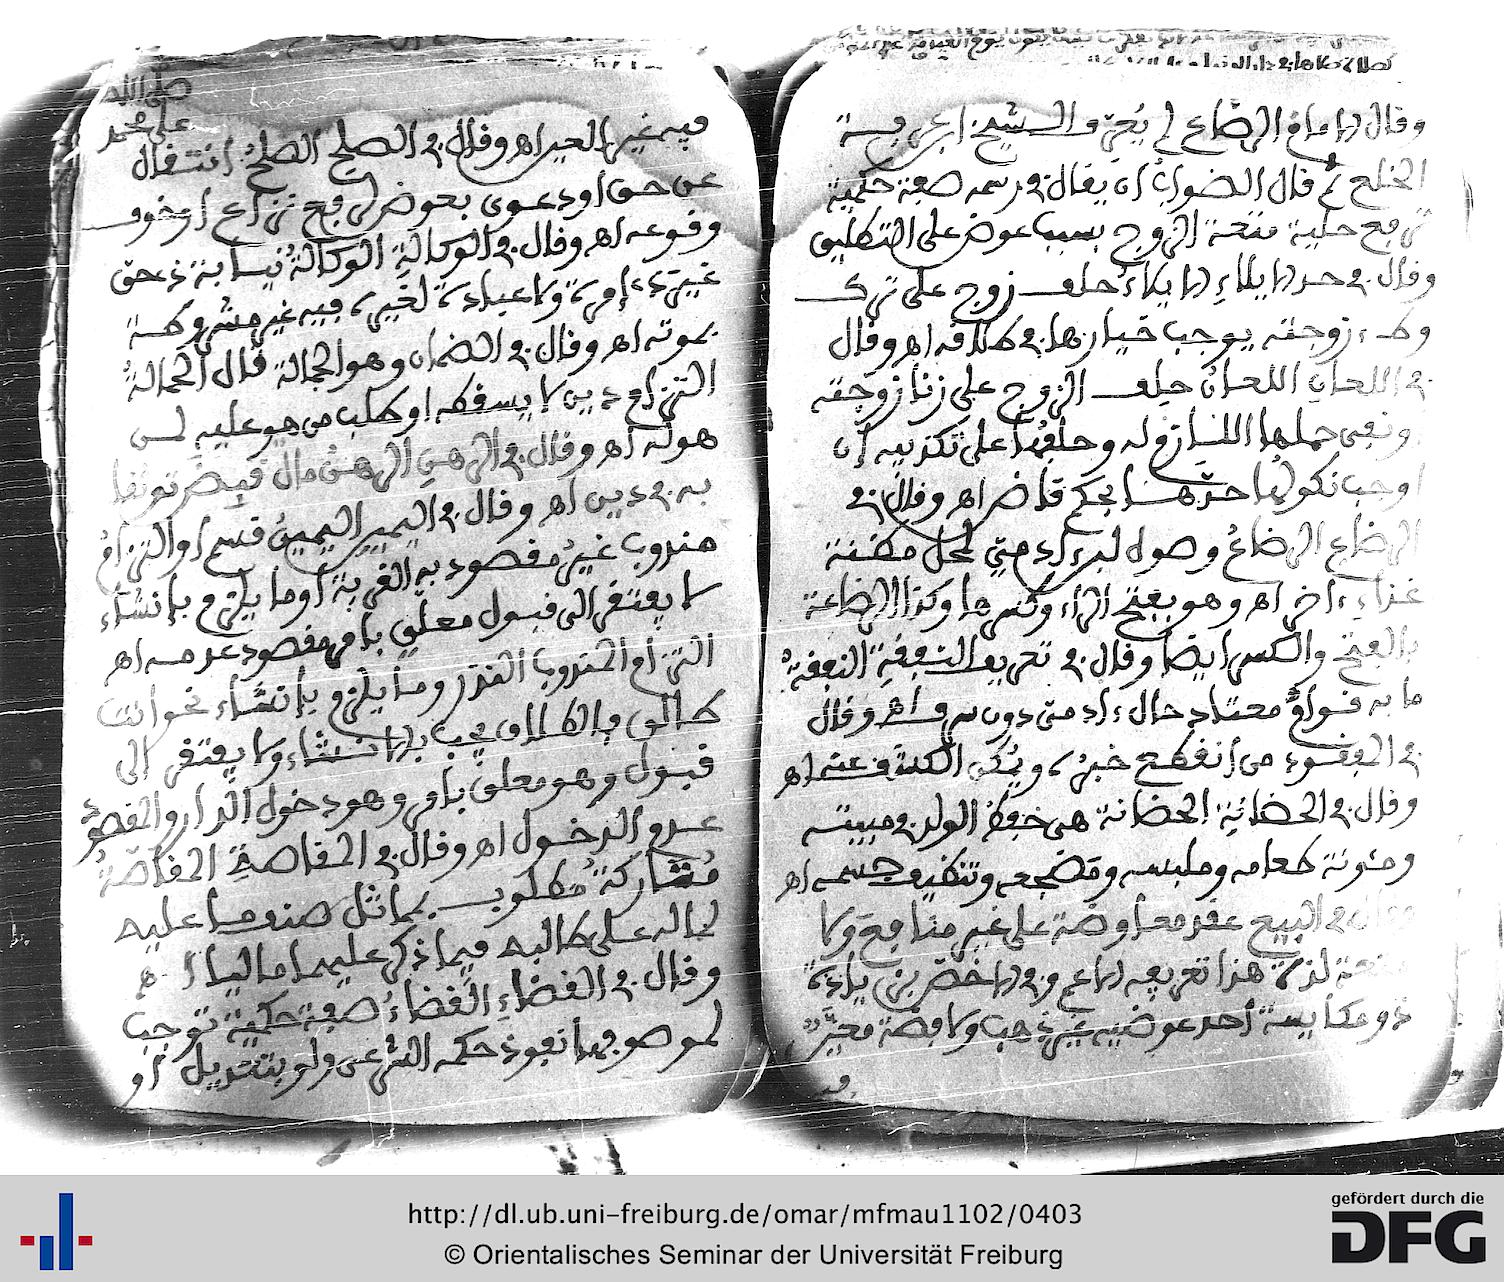 وقال الامام الرضاع لم يعرف الشيخ ابن عرفة
الخلع ثم قال الصواب أن يقال في رسمه صفة حكمية
ترفع حلية متعة الزوج بسبب عوض على التطليق
وقال في حد الايلاء الايلاء حلف زوج على ترك
وطء زوجته يوجب خيارها في طلاقه اه وقال
في اللعان اللعان حلف الزوج على زنا زوجته
او نفي حملها اللازم له وحلفها على تكذيبه إن
اوجب نكولها حدها بحكم قاض اه وقال في
الرضاع الرضاع وصول لبن ءادمي لمحل مظنة
غذاء ءاخر اه وهو بفتح الراء وكسرها وكذا الرضاعة
بالفتح والكسر ايضا وقال في تعريف النفقة النفقة
ما به قوام معتاد حال ءادمي دون سرف اه وقال
في المفقود من أنقطع خبره ويمكن الكشف عنه اه
وقال في الحضانة الحضانة هي حفظ الولد في مبيته
ومئونة طعامه وملبسه ومضجعه وتنظيف جسمه اه
وقال في البيع عقد معاوضة على غير منافع ولا
متعة لذة هذا تعريفه الاعم وفي الاخص بزيادة
ذو مكايسة أحد عوضيه غير ذهب ولا فضة معين
فيه
صلى الله
على محمد
فيه غير العين اه وقال في الصلح الصلح انتقال
عن حق او دعوى بعوض لرفع نزاع او خوف
وقوعه اه وقال في الوكالة الوكالة نيابة ذي حق
غير ذي إمرة ولا عبادة لغيره فيه غير مشروطة
بموته اه وقال في الضمان وهو الحمالة قال الحمالة
التزام دين لا يسقطه او طلب من هو عليه لمن
هو له اه وقال في الرهن الرهن مال قبض توثقا
به في دين اه وقال في اليمين اليمين قسم او التزام
مندوب غير مقصود به القربة أو ما يلزم بإنشاء
لا يفتقر الى قبول معلق بامر مقصود عدمه اه
التزام المندوب النذر وما يلزم بإنشاء نحو انت
طالق فالطلاق يجب بالانشاء ولا يفتقر الى
قبول وهو معلق بامر وهو دخول الدار والمقصود
عدم الدخول اه وقال في المقاصة المقاصة
متاركة مطلوب بمماثل صنف ما عليه
لما له على طالبه فيما ذكر عليهما
وقال في القضاء القضاء صفة حكمية توجب
لموصوفها نفوذ حكمه الشرعي ولو بتعديل او
http://dl.ub.uni-freiburg.de/omar/mfmau1102/0403
© Orientalisches Seminar der Universität Freiburg
gefördert durch die
DFG